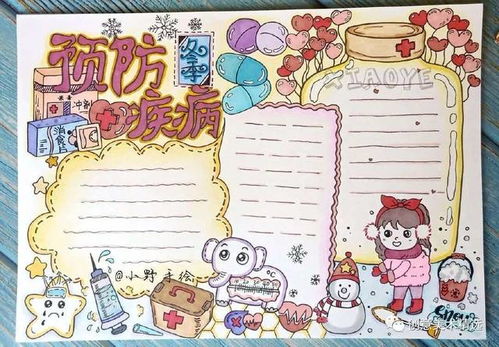 预防
冬季
疾病
XIAOYE
冲剂
消食片
@小野手绘
°C